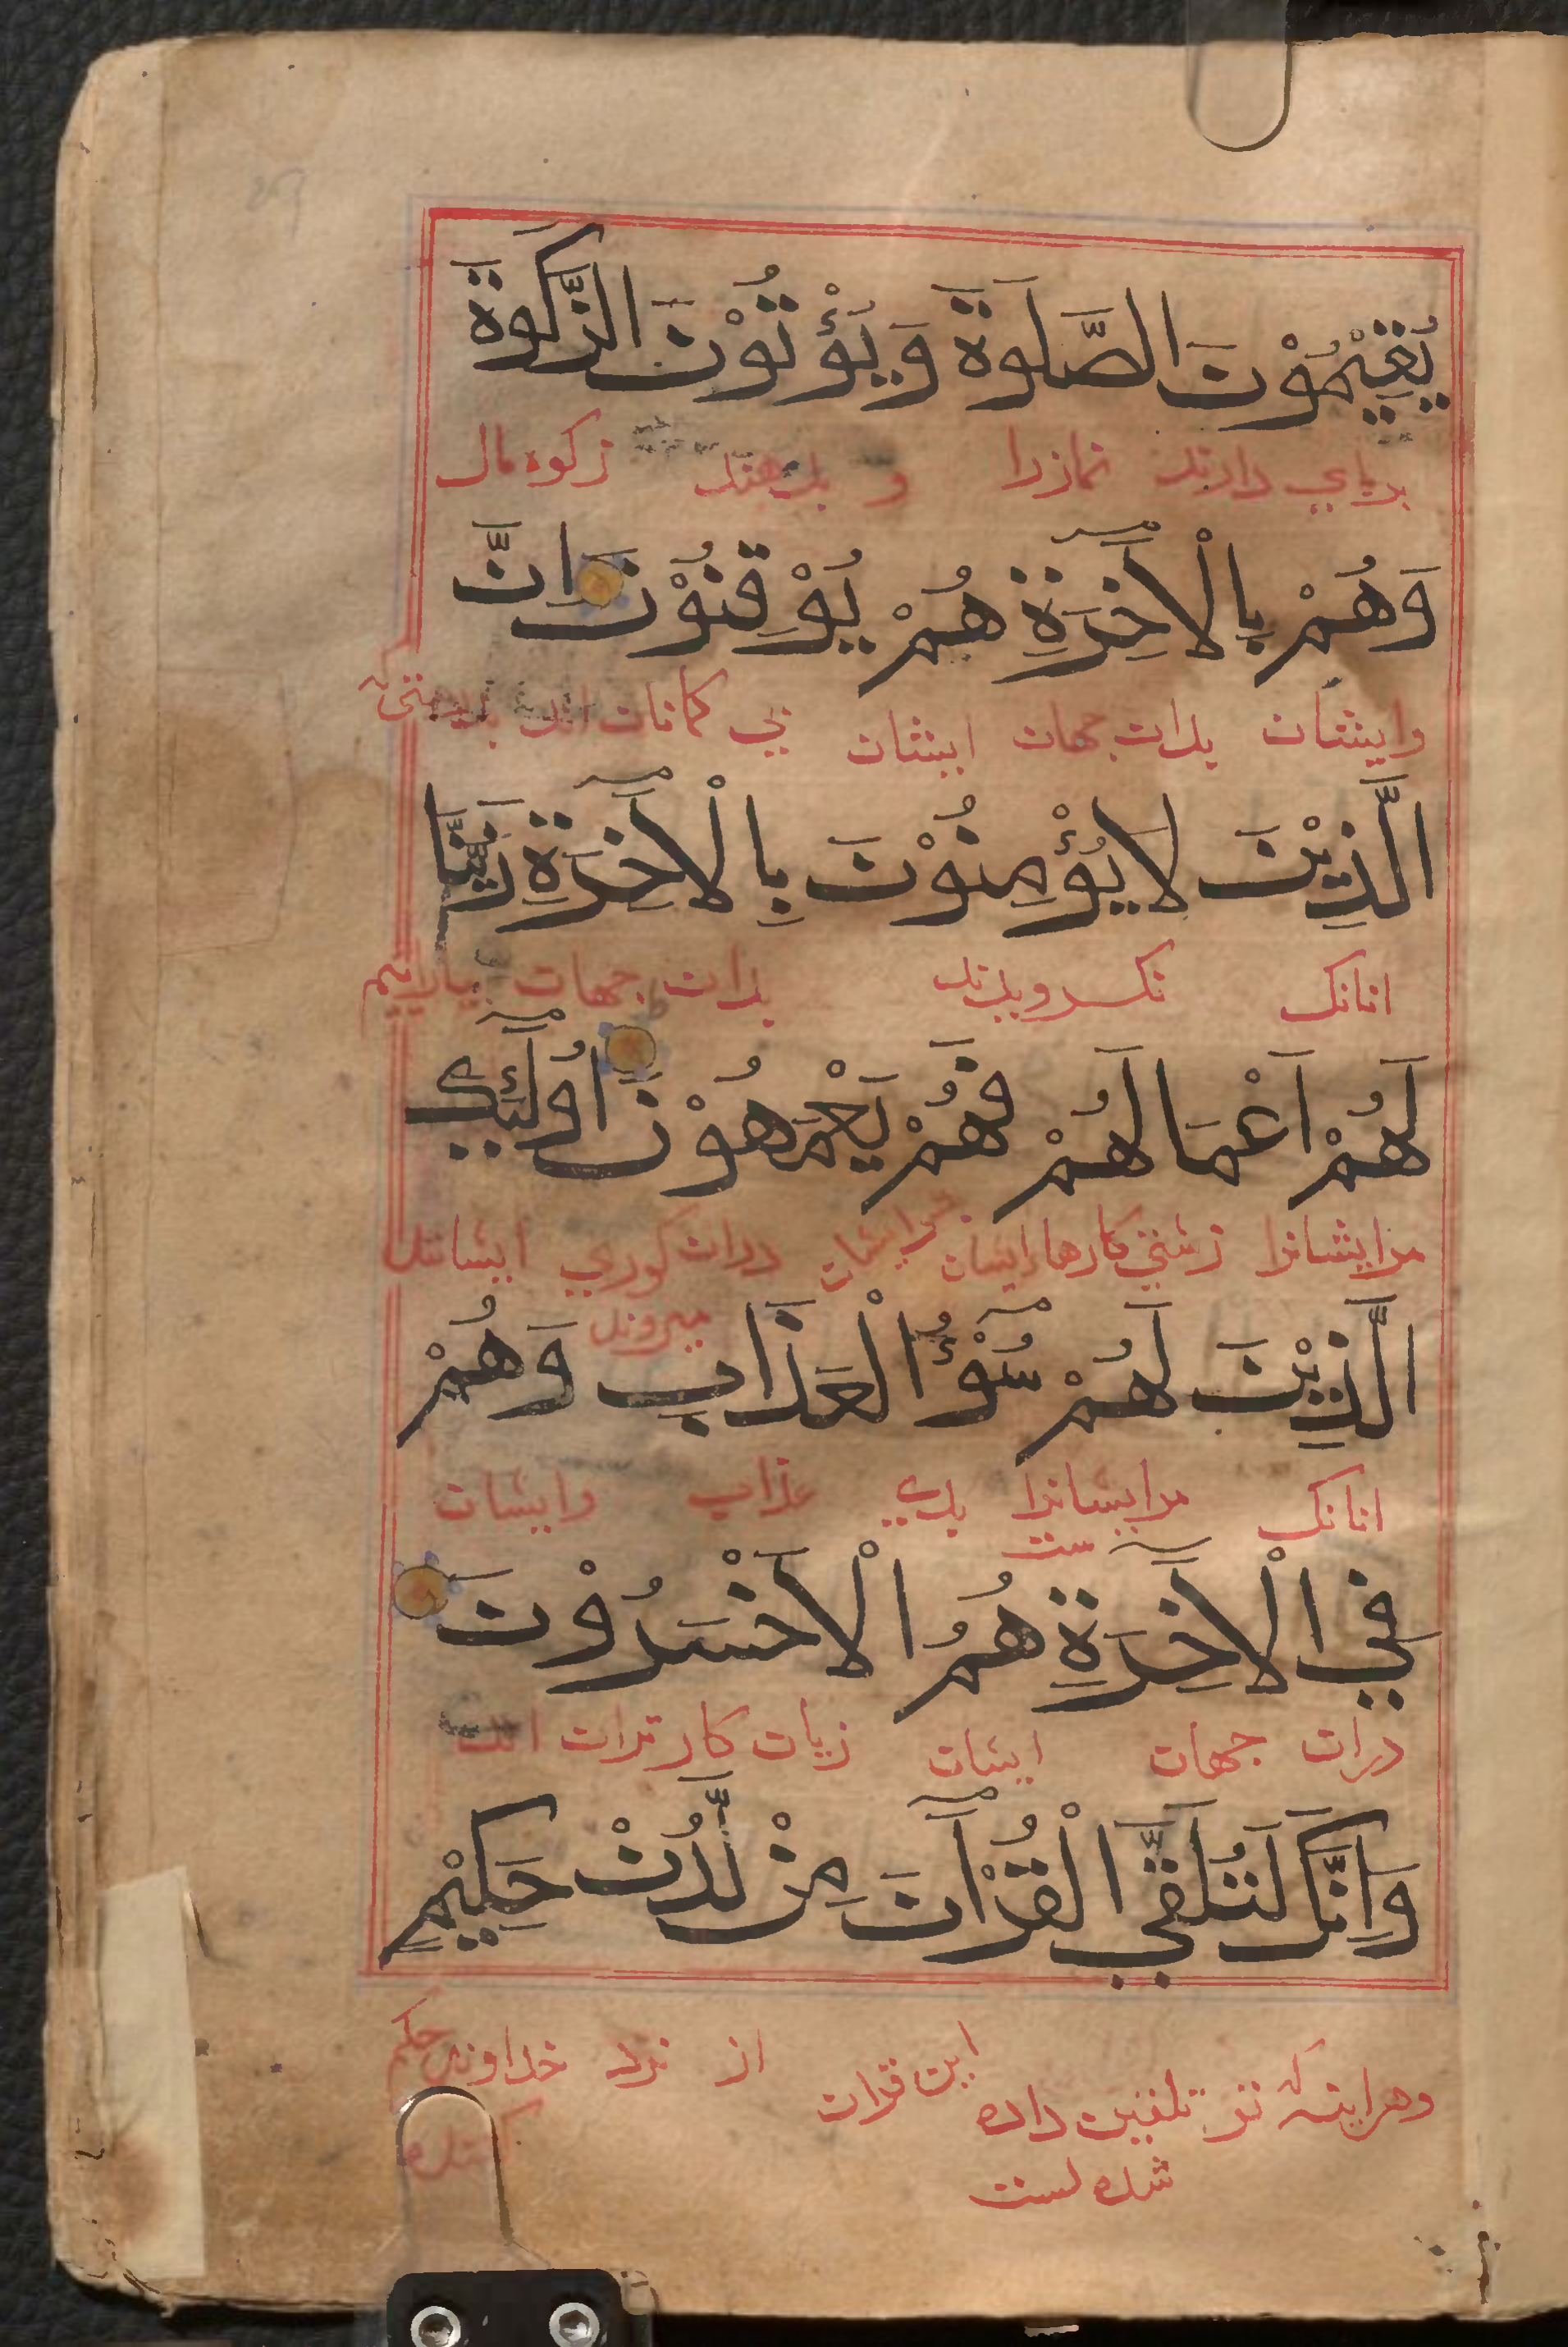 يُقِيْمُوْنَ الصَّلوةَ وَيُؤْتُوْنَ الزَّكوةَ
برپاي دارند نمازرا و بدهند زكوه مال
وَهُمْ بِالْاٰخِرَةِ هُمْ يُوْقِنُوْنَ اِنَّ
وايشان بدان جهان ايشان بي كمانان اند بدرستي كه
الَّذِيْنَ لَا يُؤْمِنُوْنَ بِالْاٰخِرَةِ زَيَّنَّا
انانك نكرويدند بدان جهان بياراييم
لَهُمْ اَعْمَالَهُمْ فَهُمْ يَعْمَهُوْنَ اُولٰٓئِكَ
مرايشانرا زشتي كارها ايشان ايشان دران كوري ايشانند
ميروند
الَّذِيْنَ لَهُمْ سُوْٓءُ الْعَذَابِ وَهُمْ
انانك مرايشانرا بدي عذاب وايشان
ست
فِي الْاٰخِرَةِ هُمُ الْاَخْسَرُوْنَ
دران جهان ايشان زيان كارتران اند
وَاِنَّكَ لَتُلَقَّي الْقُرْاٰنَ مِنْ لَّدُنْ حَكِيْمٍ
وهراينه كه تو تلقين داده اين قران از نزد خداوند حكم
شده است كننده